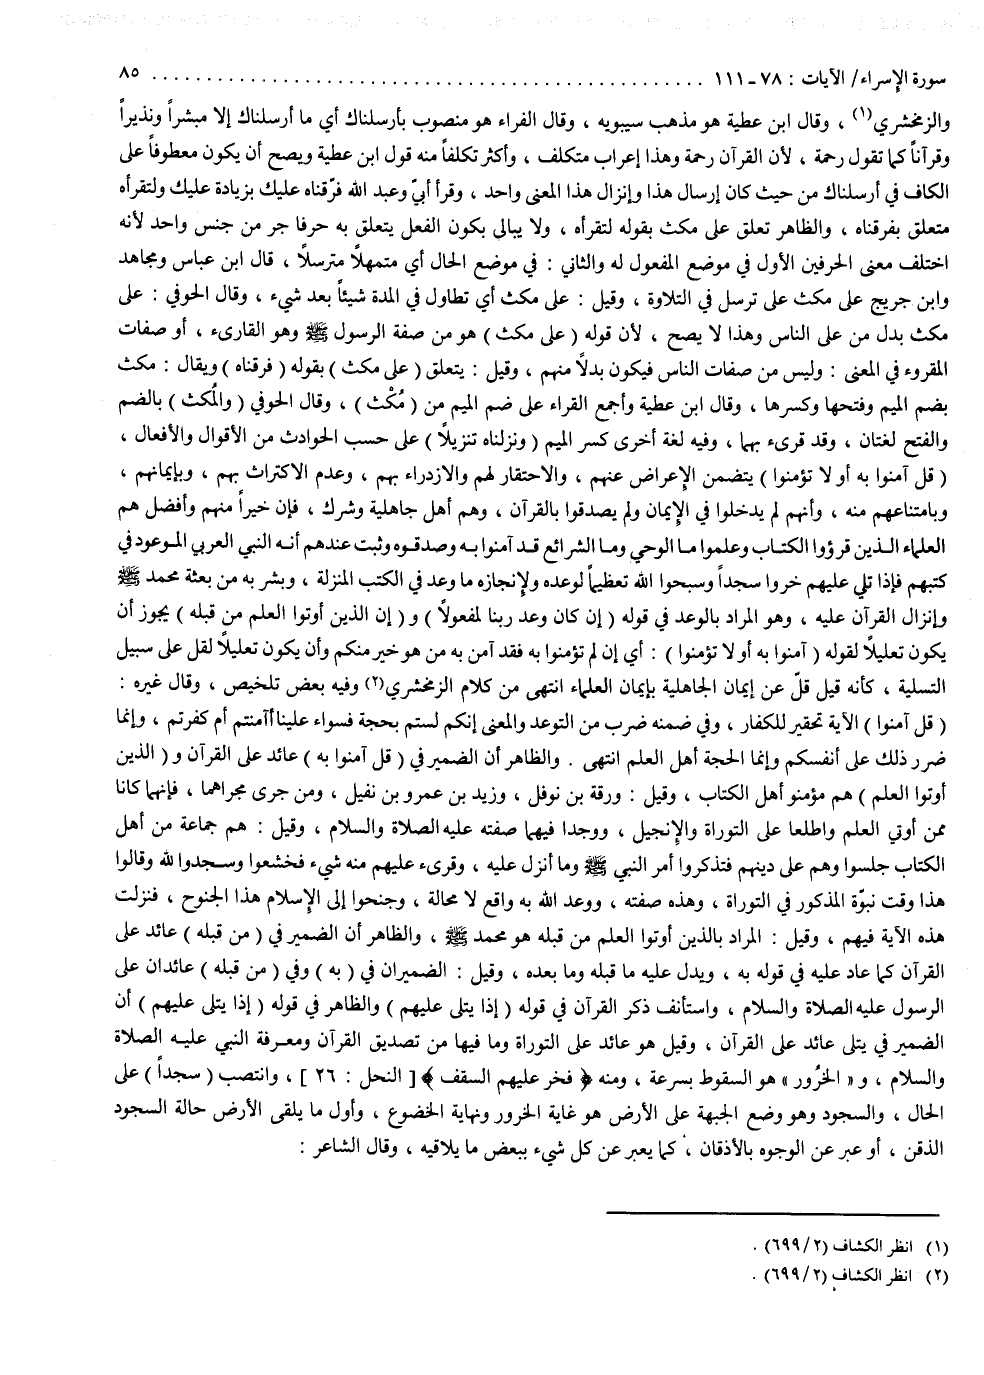 سورة الإسراء/ الآيات : ٧٨ - ١١١ ........................................ ٨٥
والزمخشري(١) ، وقال ابن عطية هو مذهب سيبويه ، وقال الفراء هو منصوب بأرسلناك أي ما أرسلناك إلا مبشراً ونذيراً
وقرآناً كما تقول رحمة ، لأن القرآن رحمة وهذا إعراب متكلف ، وأكثر تكلفاً منه قول ابن عطية ويصح أن يكون معطوفاً على
الكاف في أرسلناك من حيث كان إرسال هذا وإنزال هذا المعنى واحد ، وقرأ أبيّ وعبد الله فرّقناه عليك بزيادة عليك ولتقرأه
متعلق بفرقناه ، والظاهر تعلق على مكث بقوله لتقرأه ، ولا يبالى بكون الفعل يتعلق به حرفا جر من جنس واحد لأنه
اختلف معنى الحرفين الأول في موضع المفعول له والثاني : في موضع الحال أي متمهلاً مترسلاً ، قال ابن عباس ومجاهد
وابن جريج على مكث على ترسل في التلاوة ، وقيل : على مكث أي تطاول في المدة شيئاً بعد شيء ، وقال الحوفي : على
مكث بدل من على الناس وهذا لا يصح ، لأن قوله ( على مكث ) هو من صفة الرسول ﷺ وهو القارىء ، أو صفات
المقروء في المعنى : وليس من صفات الناس فيكون بدلاً منهم ، وقيل : يتعلق ( على مكث ) بقوله ( فرقناه ) ويقال : مكث
بضم الميم وفتحها وكسرها ، وقال ابن عطية وأجمع القراء على ضم الميم من ( مُكْث ) ، وقال الحوفي ( والمُكث ) بالضم
والفتح لغتان ، وقد قرىء بهما ، وفيه لغة أخرى كسر الميم ( ونزلناه تنزيلاً ) على حسب الحوادث من الأقوال والأفعال ،
( قل آمنوا به أو لا تؤمنوا ) يتضمن الإعراض عنهم ، والاحتقار لهم والازدراء بهم ، وعدم الاكتراث بهم ، وبإيمانهم ،
وبامتناعهم منه ، وأنهم لم يدخلوا في الإيمان ولم يصدقوا بالقرآن ، وهم أهل جاهلية وشرك ، فإن خيراً منهم وأفضل هم
العلماء الذين قرؤوا الكتاب وعلموا ما الوحي وما الشرائع قد آمنوا به وصدقوه وثبت عندهم أنه النبي العربي الموعود في
كتبهم فإذا تلي عليهم خروا سجداً وسبحوا الله تعظيماً لوعده ولإنجازه ما وعد في الكتب المنزلة ، وبشر به من بعثة محمد ﷺ
وإنزال القرآن عليه ، وهو المراد بالوعد في قوله ( إن كان وعد ربنا لمفعولاً ) و ( إن الذين أوتوا العلم من قبله ) يجوز أن
يكون تعليلاً لقوله ( آمنوا به أو لا تؤمنوا ) : أي إن لم تؤمنوا به فقد آمن به من هو خير منكم وأن يكون تعليلاً لقل على سبيل
التسلية ، كأنه قيل قلّ عن إيمان الجاهلية بإيمان العلماء انتهى من كلام الزمخشري(٢) وفيه بعض تلخيص ، وقال غيره :
( قل آمنوا ) الآية تحقير للكفار ، وفي ضمنه ضرب من التوعد والمعنى إنكم لستم بحجة فسواء علينا أآمنتم أم كفرتم ، وإنما
ضرر ذلك على أنفسكم وإنما الحجة أهل العلم انتهى . والظاهر أن الضمير في ( قل آمنوا به ) عائد على القرآن و ( الذين
أوتوا العلم ) هم مؤمنو أهل الكتاب ، وقيل : ورقة بن نوفل ، وزيد بن عمرو بن نفيل ، ومن جرى مجراهما ، فإنهما كانا
ممن أوتي العلم واطلعا على التوراة والإنجيل ، ووجدا فيهما صفته عليه الصلاة والسلام ، وقيل : هم جماعة من أهل
الكتاب جلسوا وهم على دينهم فتذكروا أمر النبي ﷺ وما أنزل عليه ، وقرىء عليهم منه شيء فخشعوا وسجدوا لله وقالوا
هذا وقت نبوّة المذكور في التوراة ، وهذه صفته ، ووعد الله به واقع لا محالة ، وجنحوا إلى الإسلام هذا الجنوح ، فنزلت
هذه الآية فيهم ، وقيل : المراد بالذين أوتوا العلم من قبله هو محمد ﷺ ، والظاهر أن الضمير في ( من قبله ) عائد على
القرآن كما عاد عليه في قوله به ، ويدل عليه ما قبله وما بعده ، وقيل : الضميران في ( به ) وفي ( من قبله ) عائدان على
الرسول عليه الصلاة والسلام ، واستأنف ذكر القرآن في قوله ( إذا يتلى عليهم ) والظاهر في قوله ( إذا يتلى عليهم ) أن
الضمير في يتلى عائد على القرآن ، وقيل هو عائد على التوراة وما فيها من تصديق القرآن ومعرفة النبي عليه الصلاة
والسلام ، و « الخرُور » هو السقوط بسرعة ، ومنه ﴿ فخر عليهم السقف ﴾ [ النحل : ٢٦ ] ، وانتصب ( سجداً ) على
الحال ، والسجود وهو وضع الجبهة على الأرض هو غاية الخرور ونهاية الخضوع ، وأول ما يلقى الأرض حالة السجود
الذقن ، أو عبر عن الوجوه بالأذقان ، كما يعبر عن كل شيء ببعض ما يلاقيه ، وقال الشاعر :
(١) انظر الكشاف (٢/ ٦٩٩) .
(٢) انظر الكشاف (٢/ ٦٩٩) .